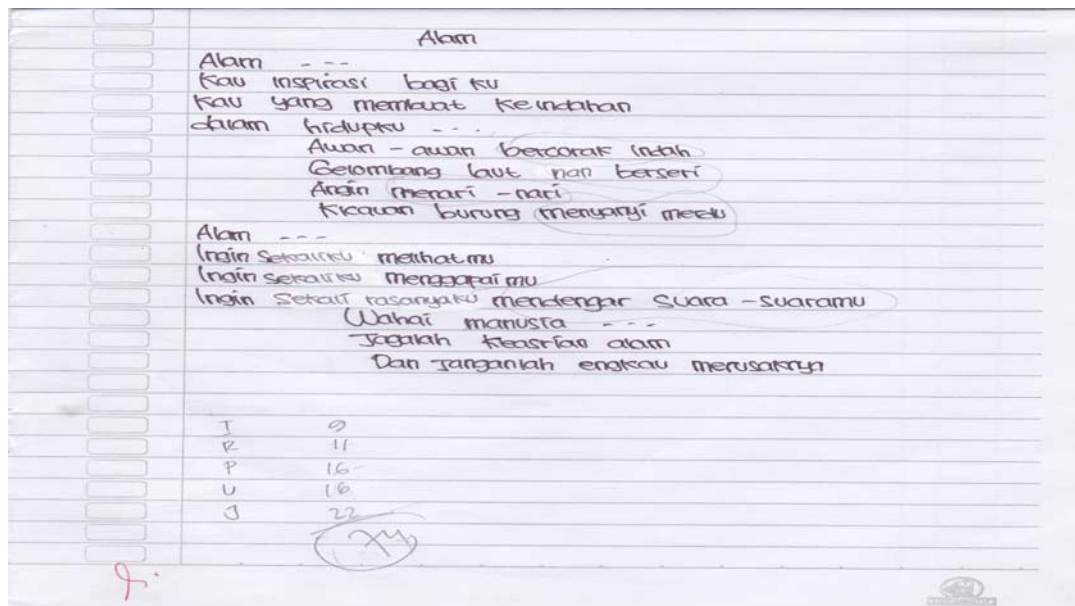 Alam
Alam ---
Kau inspirasi bagi ku
Kau yang membuat keindahan
dalam hidupku ---
Awan - awan bercorak indah
Gelombang laut nan berseri
Angin menari - nari
Kicauan burung menyanyi merdu
Alam ---
Ingin sekaliku melihatmu
Ingin sekaliku menggapaimu
Ingin sekali rasanyaku mendengar suara - suaramu
Wahai manusia ---
Jagalah keasrian alam
Dan janganlah engkau merusaknya
I 9
R 11
P 16
U 16
J 22
74